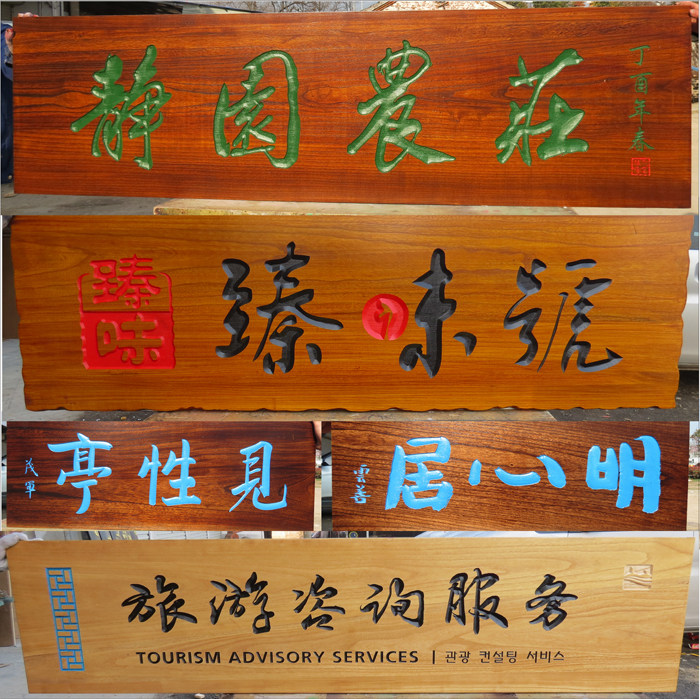 静園農莊
丁酉年春
臻味
臻味號
亭性見
茂軍
居心明
雲善
旅游咨询服务
TOURISM ADVISORY SERVICES | 관광 컨설팅 서비스